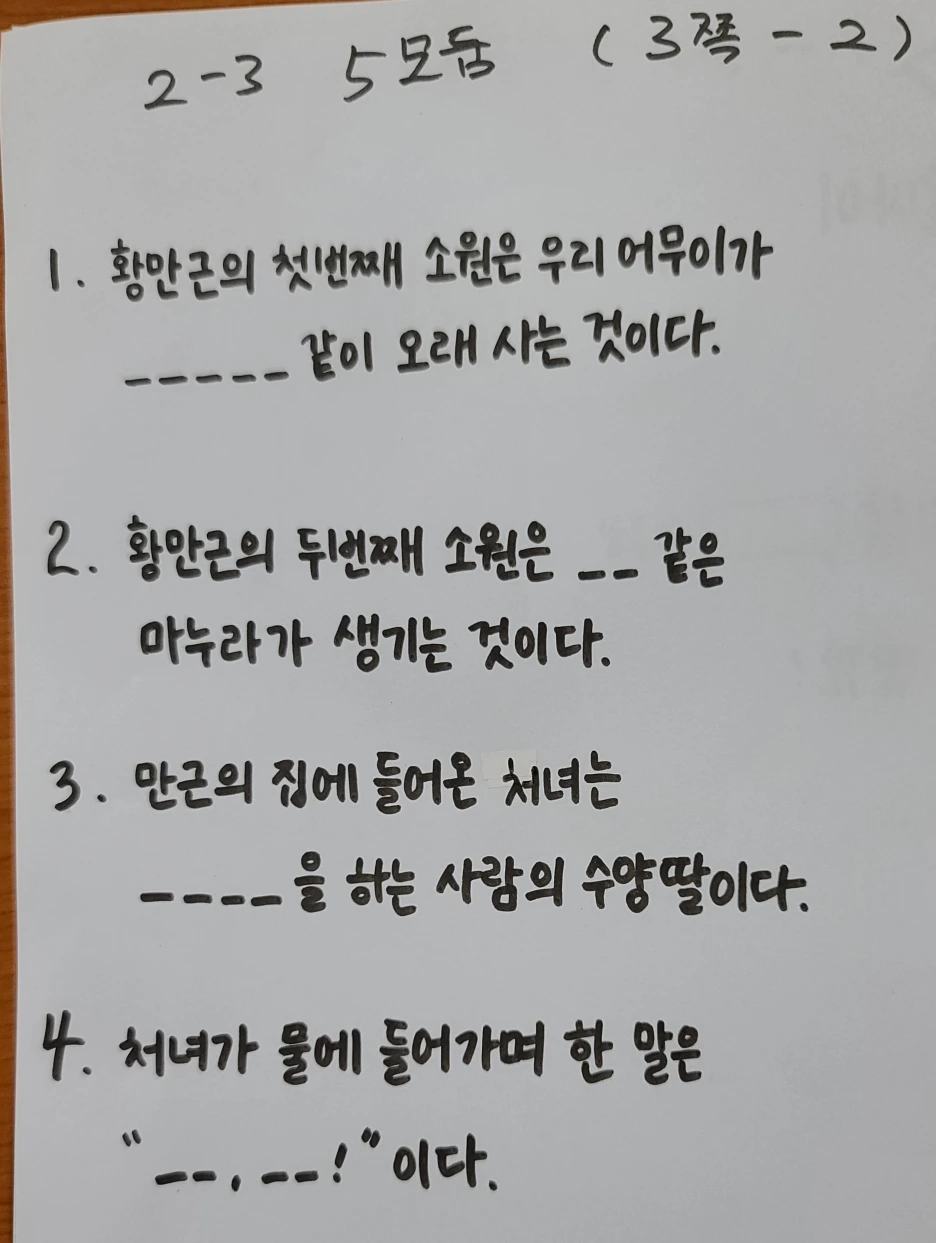 2-3 5모둠 (3쪽-2)
1. 황만근의 첫번째 소원은 우리 어무이가
_____ 같이 오래 사는 것이다.
2. 황만근의 두번째 소원은 __ 같은
마누라가 생기는 것이다.
3. 만근의 집에 들어온 처녀는
____을 하는 사람의 수양딸이다.
4. 처녀가 물에 들어가며 한 말은
"__, __!"이다.